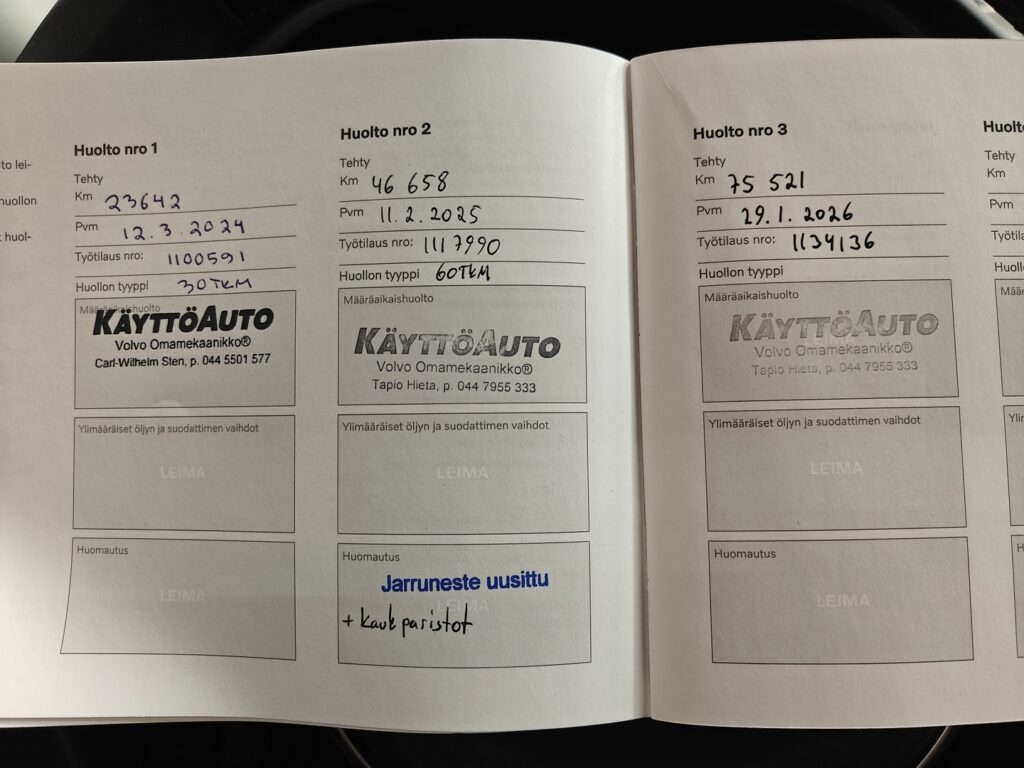 to lei-
huollon
t huol-
Huolto nro 1
Tehty
Km 23642
Pvm 12.3.2024
Työtilaus nro: 1100591
Huollon tyyppi 30TKM
Määräaikaishuolto
KÄYTTÖAUTO
Volvo Omamekaanikko®
Carl-Wilhelm Sten, p. 044 5501 577
Ylimääräiset öljyn ja suodattimen vaihdot
LEIMA
Huomautus
LEIMA
Huolto nro 2
Tehty
Km 46 658
Pvm 11.2.2025
Työtilaus nro: 1117990
Huollon tyyppi 60TKM
Määräaikaishuolto
KÄYTTÖAUTO
Volvo Omamekaanikko®
Tapio Hieta, p. 044 7955 333
Ylimääräiset öljyn ja suodattimen vaihdot
LEIMA
Huomautus
Jarruneste uusittu
LEIMA
+ kauk paristot
Huolto nro 3
Tehty
Km 75 521
Pvm 29.1.2026
Työtilaus nro: 1134136
Huollon tyyppi
Määräaikaishuolto
KÄYTTÖAUTO
Volvo Omamekaanikko®
Tapio Hieta, p. 044 7955 333
Ylimääräiset öljyn ja suodattimen vaihdot
LEIMA
Huomautus
LEIMA
Huolto
Tehty
Km
Pvm
Työtila
Huoll
Määr
Ylim